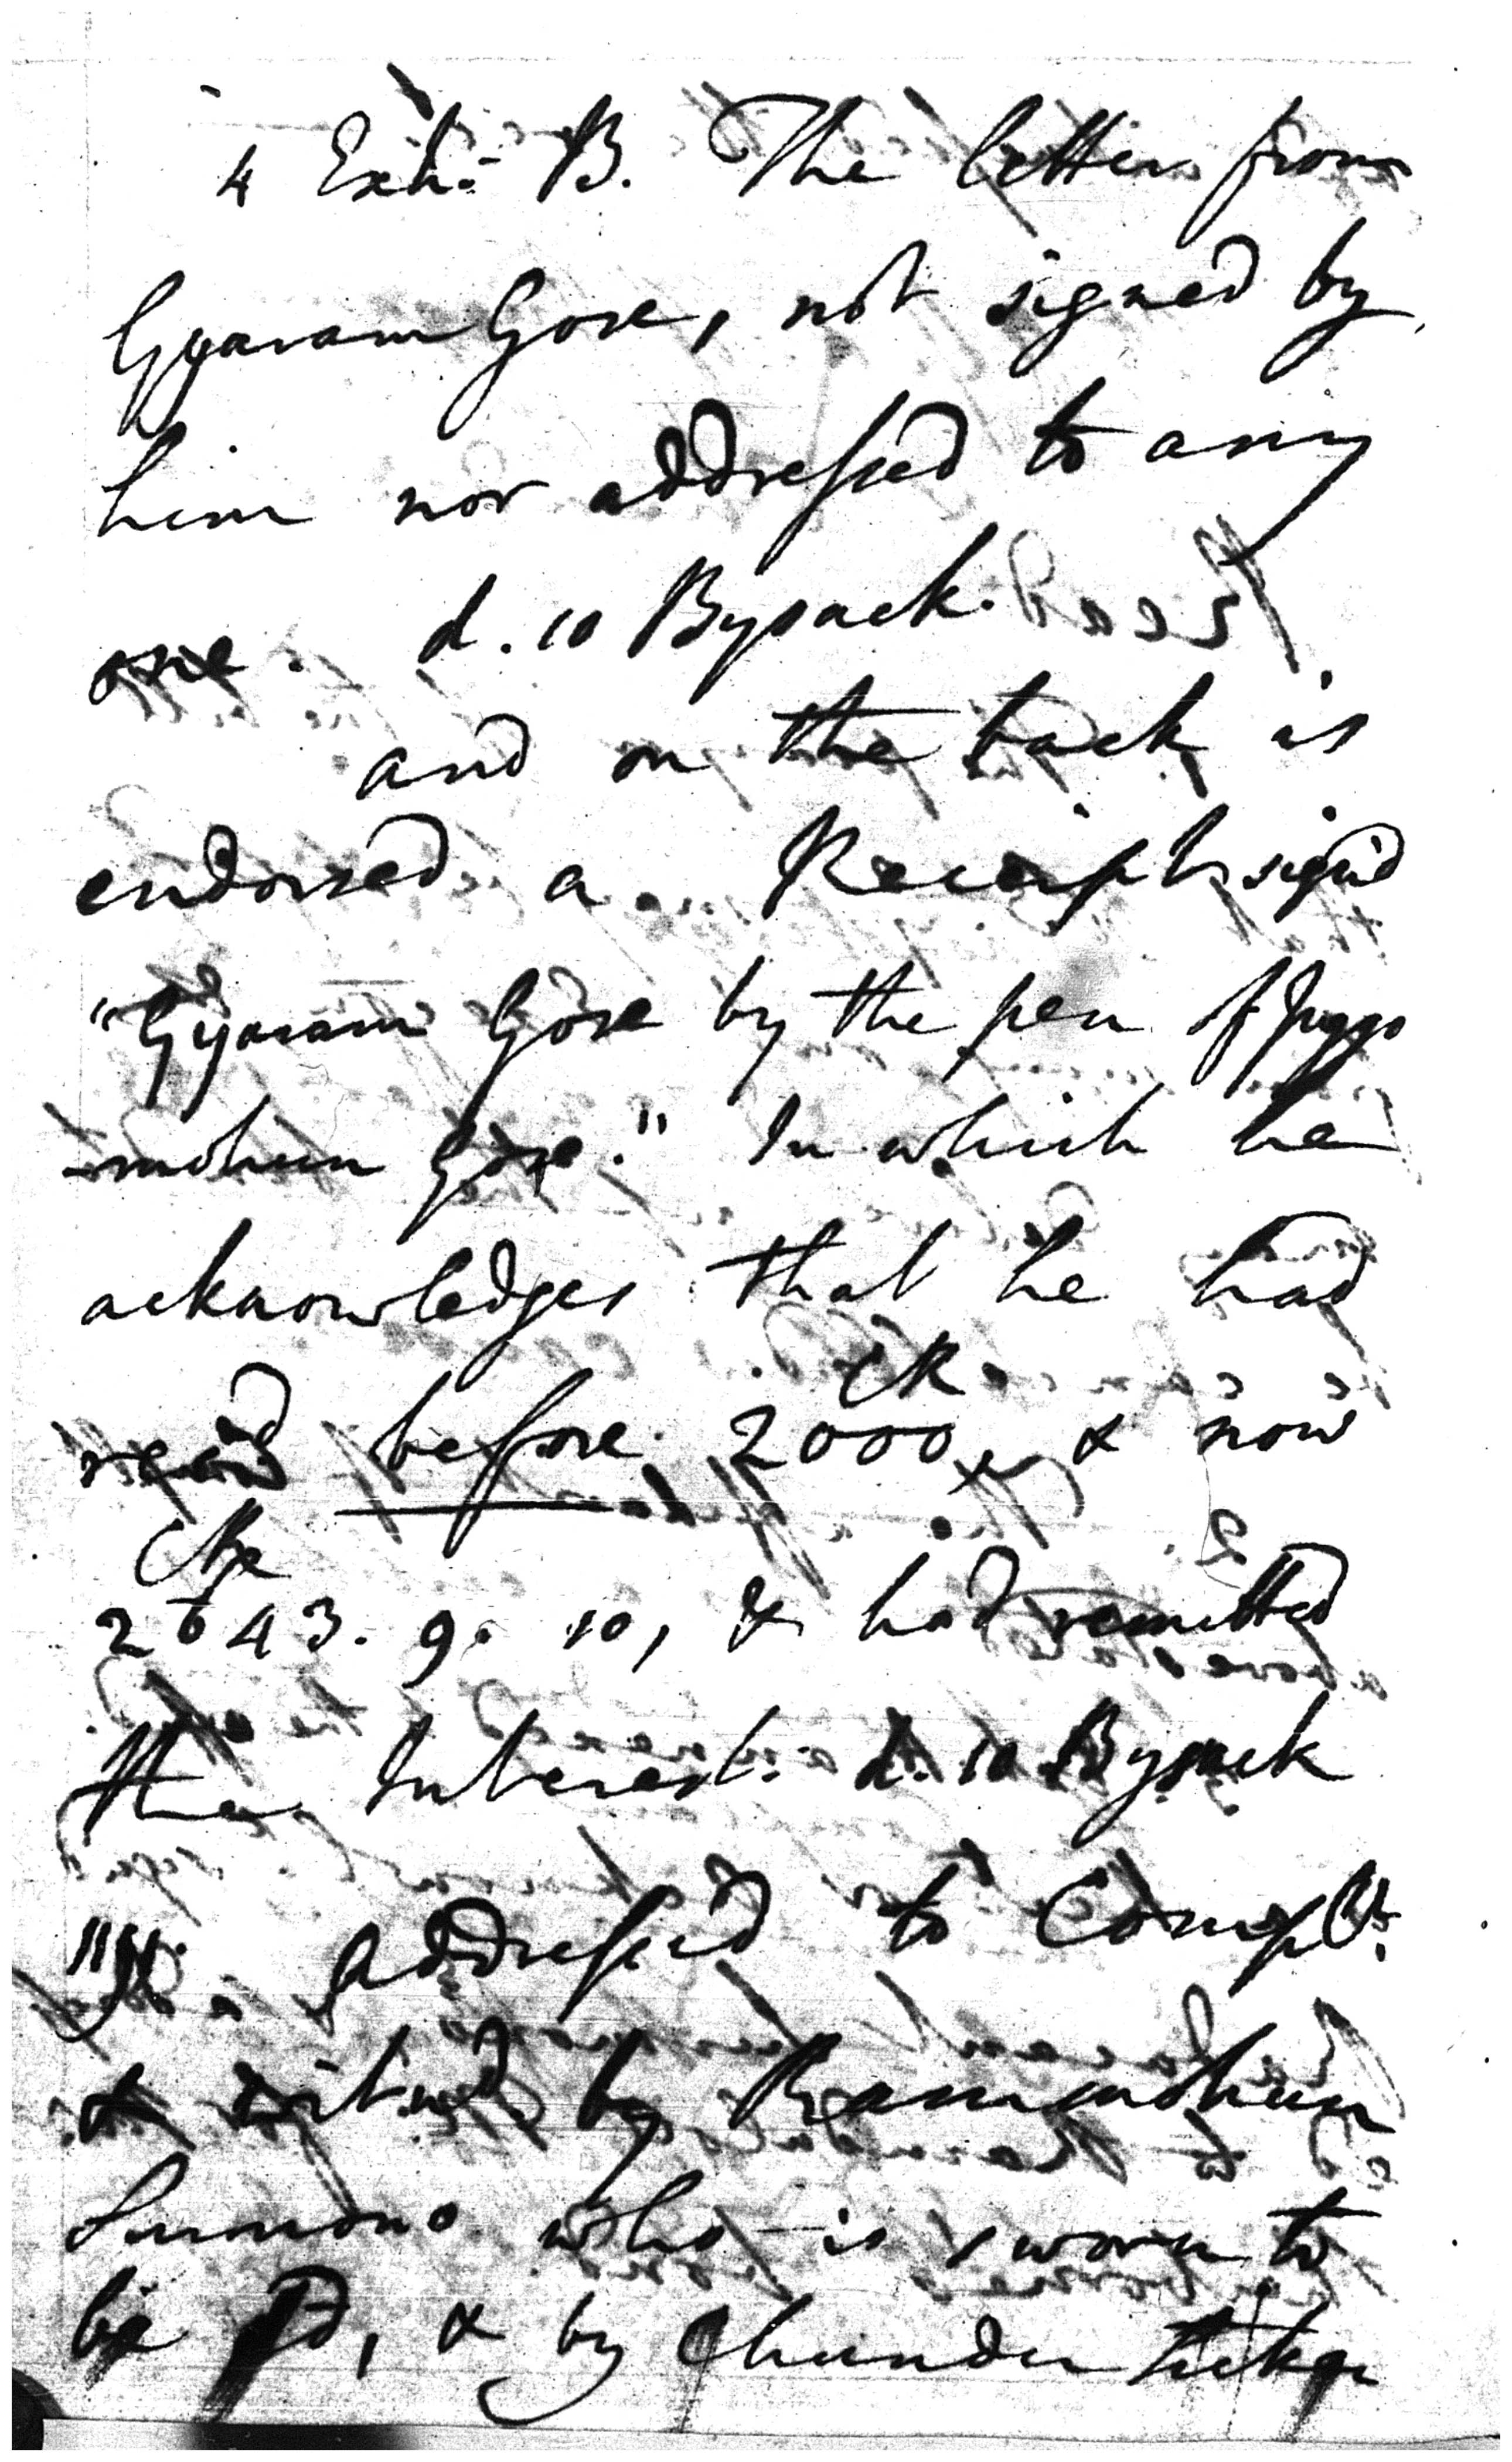 4 Exh:- B. The letter from
Gyaram Gose, not signed by
him nor addressed to any
one. d. 10 Bysack.
and on the back is
endorsed a Receipt sign'd
"Gyaram Gose by the pen of Juggo
-mohun Gose." In which he
acknowledges that he had
rec'd before 2000, & now
2643. 9. 10, & had remitted
the Interest. d. 10 Bysack
addressed to Compl.t
& by Rammohun
who is sworn to
be , & by Chunder